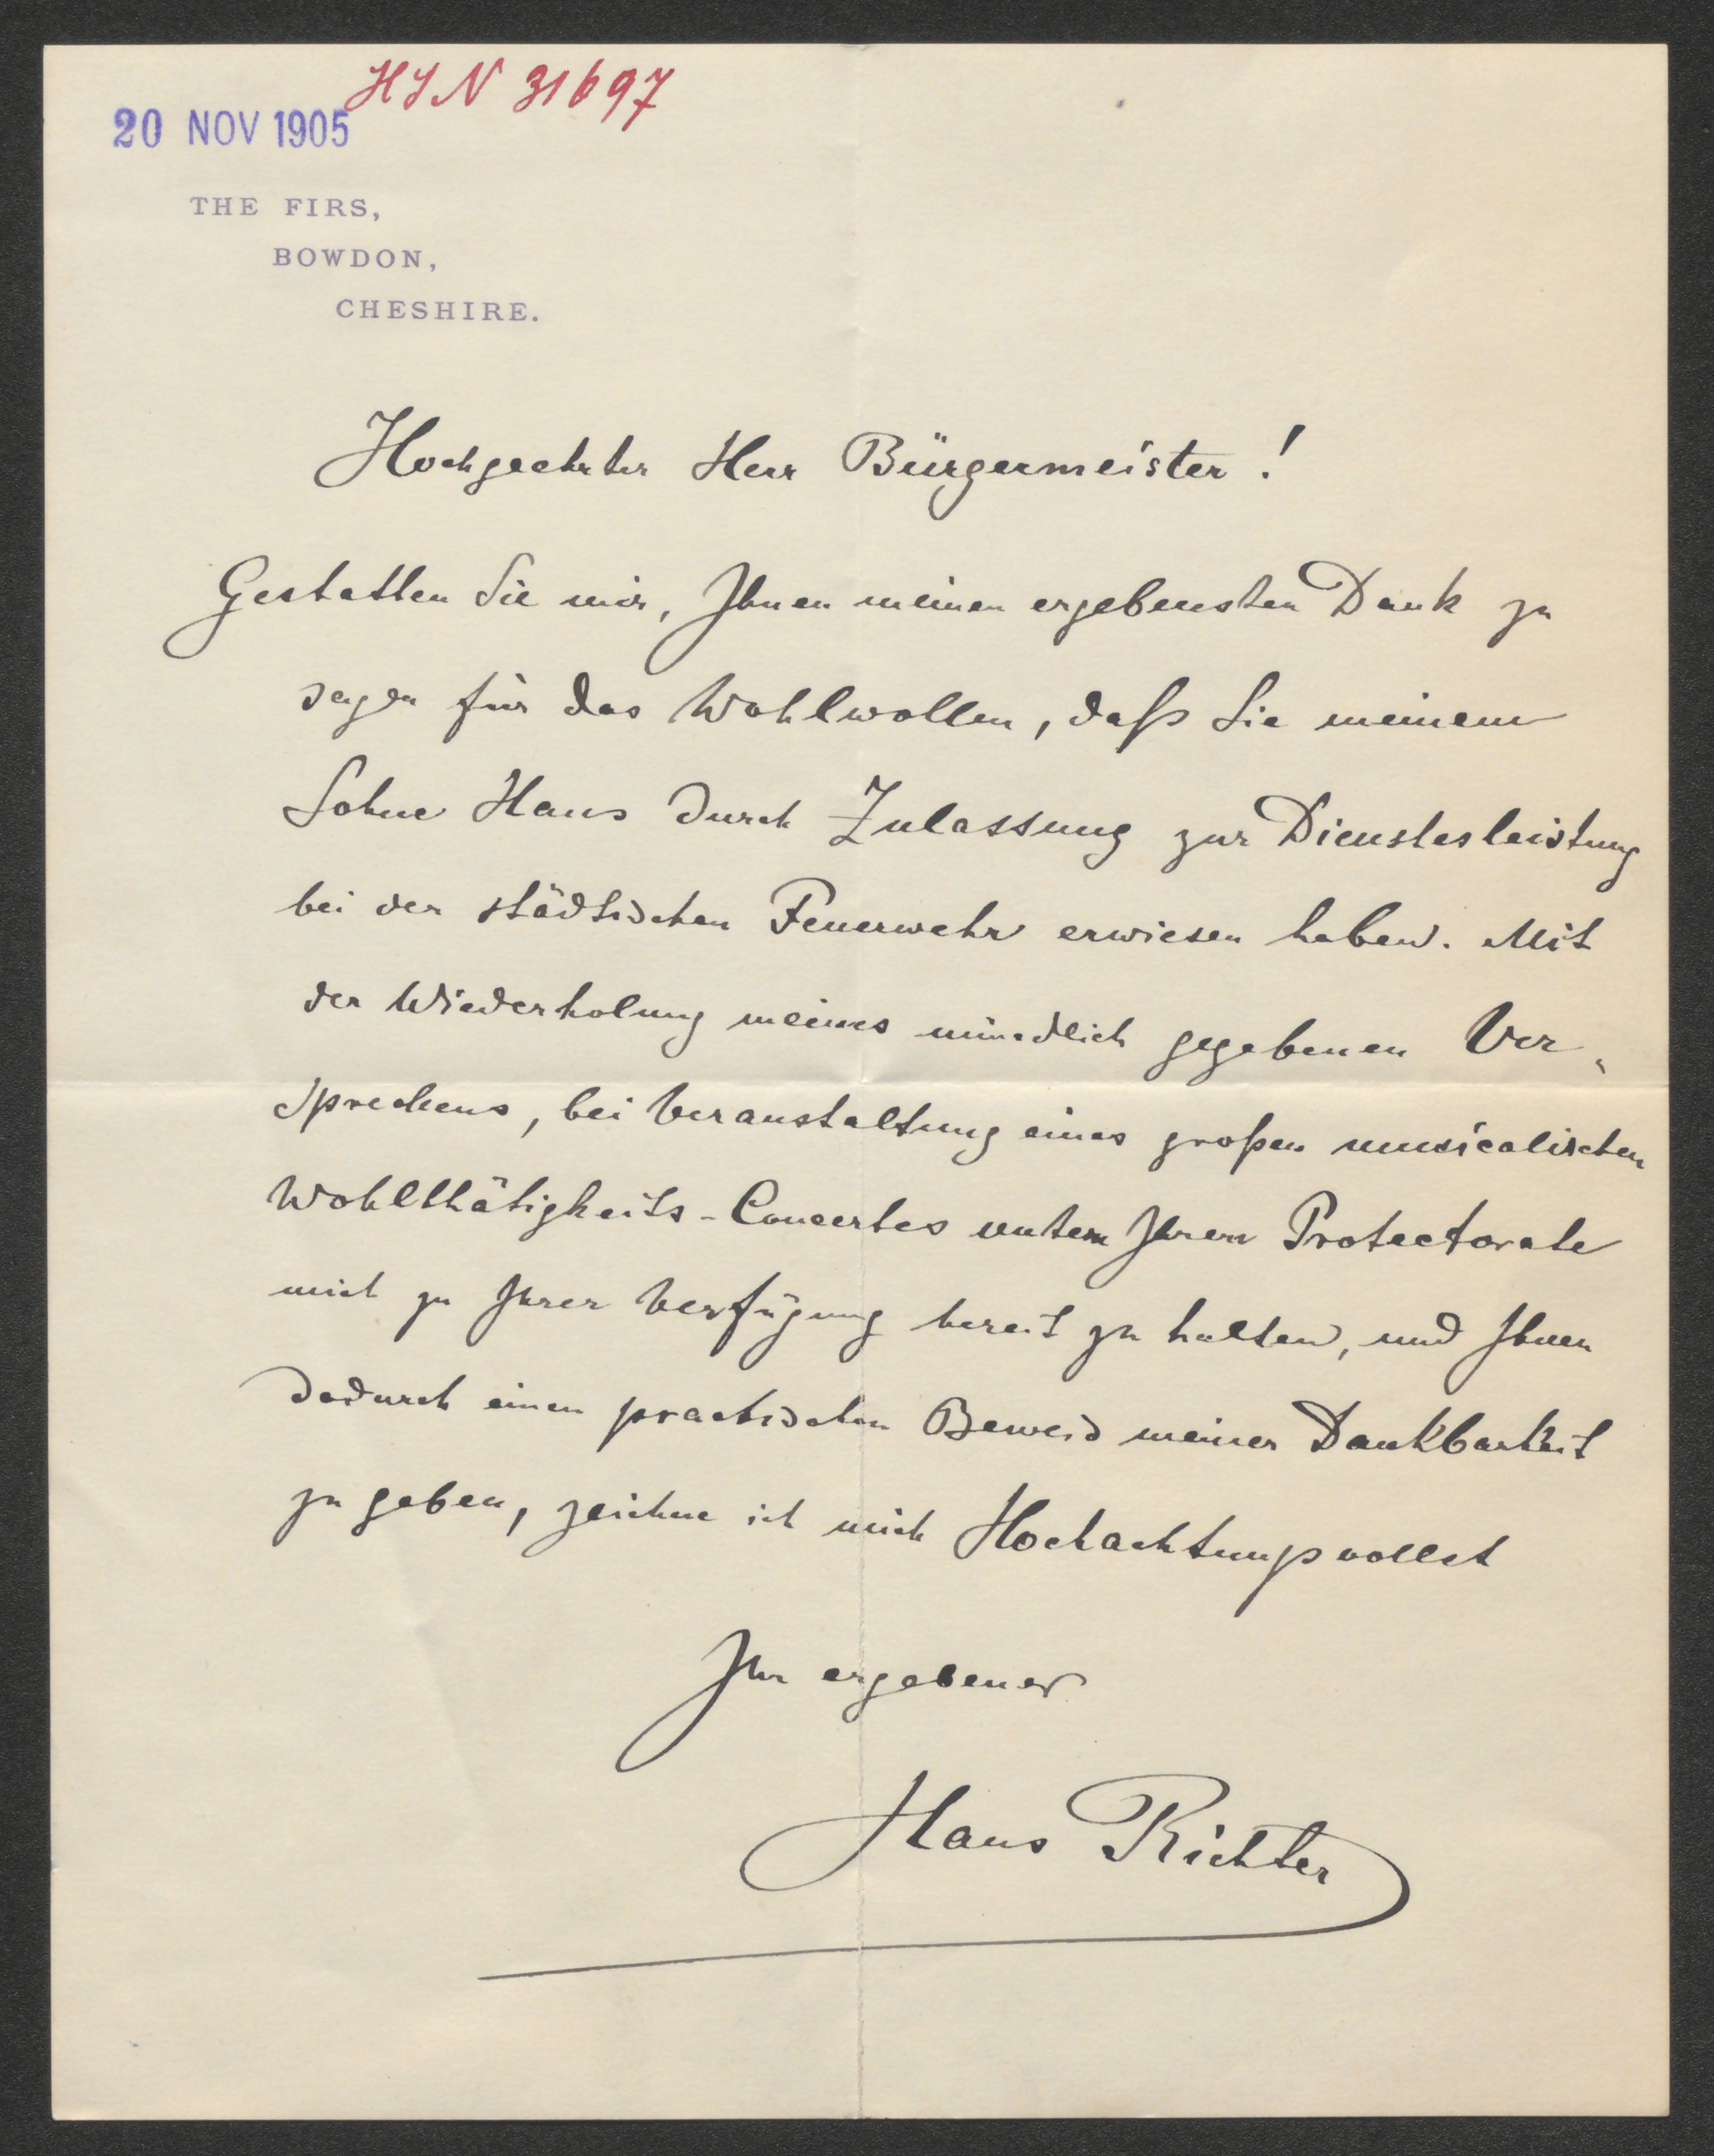 HIN 31697
20 NOV 1905
THE FIRS,
BOWDON,
CHESHIRE.
Hochgeehrter Herr Bürgermeister!
Gestatten Sie mir, Ihnen meinen ergebensten Dank zu
sagen für das Wohlwollen, daß Sie meinem
Sohne Hans durch Zulassung zur Dienstesleistung
bei der städtischen Feuerwehr erwiesen haben. Mit
der Wiederholung meines mündlich gegebenen Ver-
sprechens, bei Veranstaltung eines großen musicalischen
Wohlthätigkeits-Concertes unter Ihrem Protectorate
mich zu Ihrer Verfügung bereit zu halten, und Ihnen
dadurch einen practischen Beweis meiner Dankbarkeit
zu geben, zeichne ich mich Hochachtungsvollst
Ihr ergebener
Hans Richter